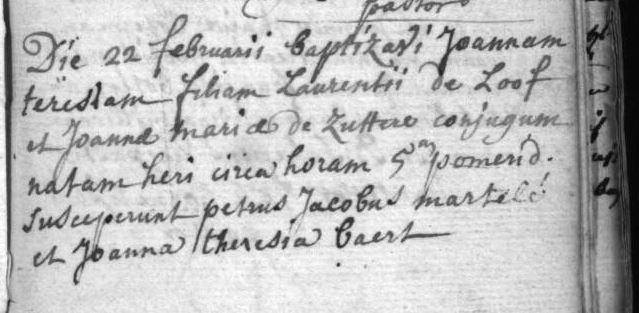 pastor
Die 22 februarii baptizavi Joannam
teresiam filiam Laurentii de Loof
et Joannæ mariæ de Zuttere conjugum
natam heri circa horam 5am pomerid.
susceperunt petrus Jacobus martelé
et Joanna theresia baert